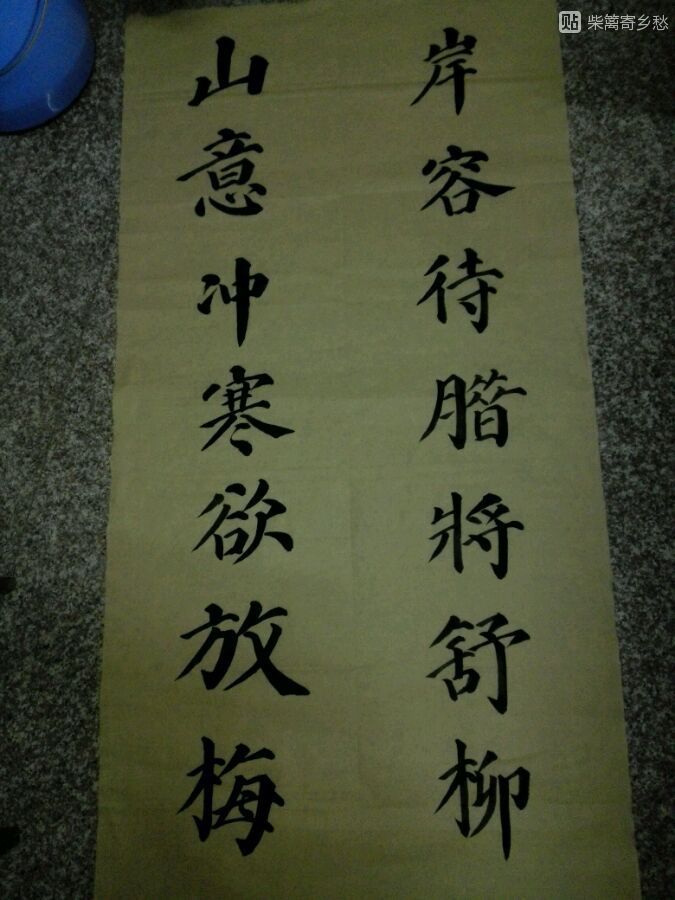 岸容待腊將舒柳
山意冲寒欲放梅
贴 柴篱寄乡愁